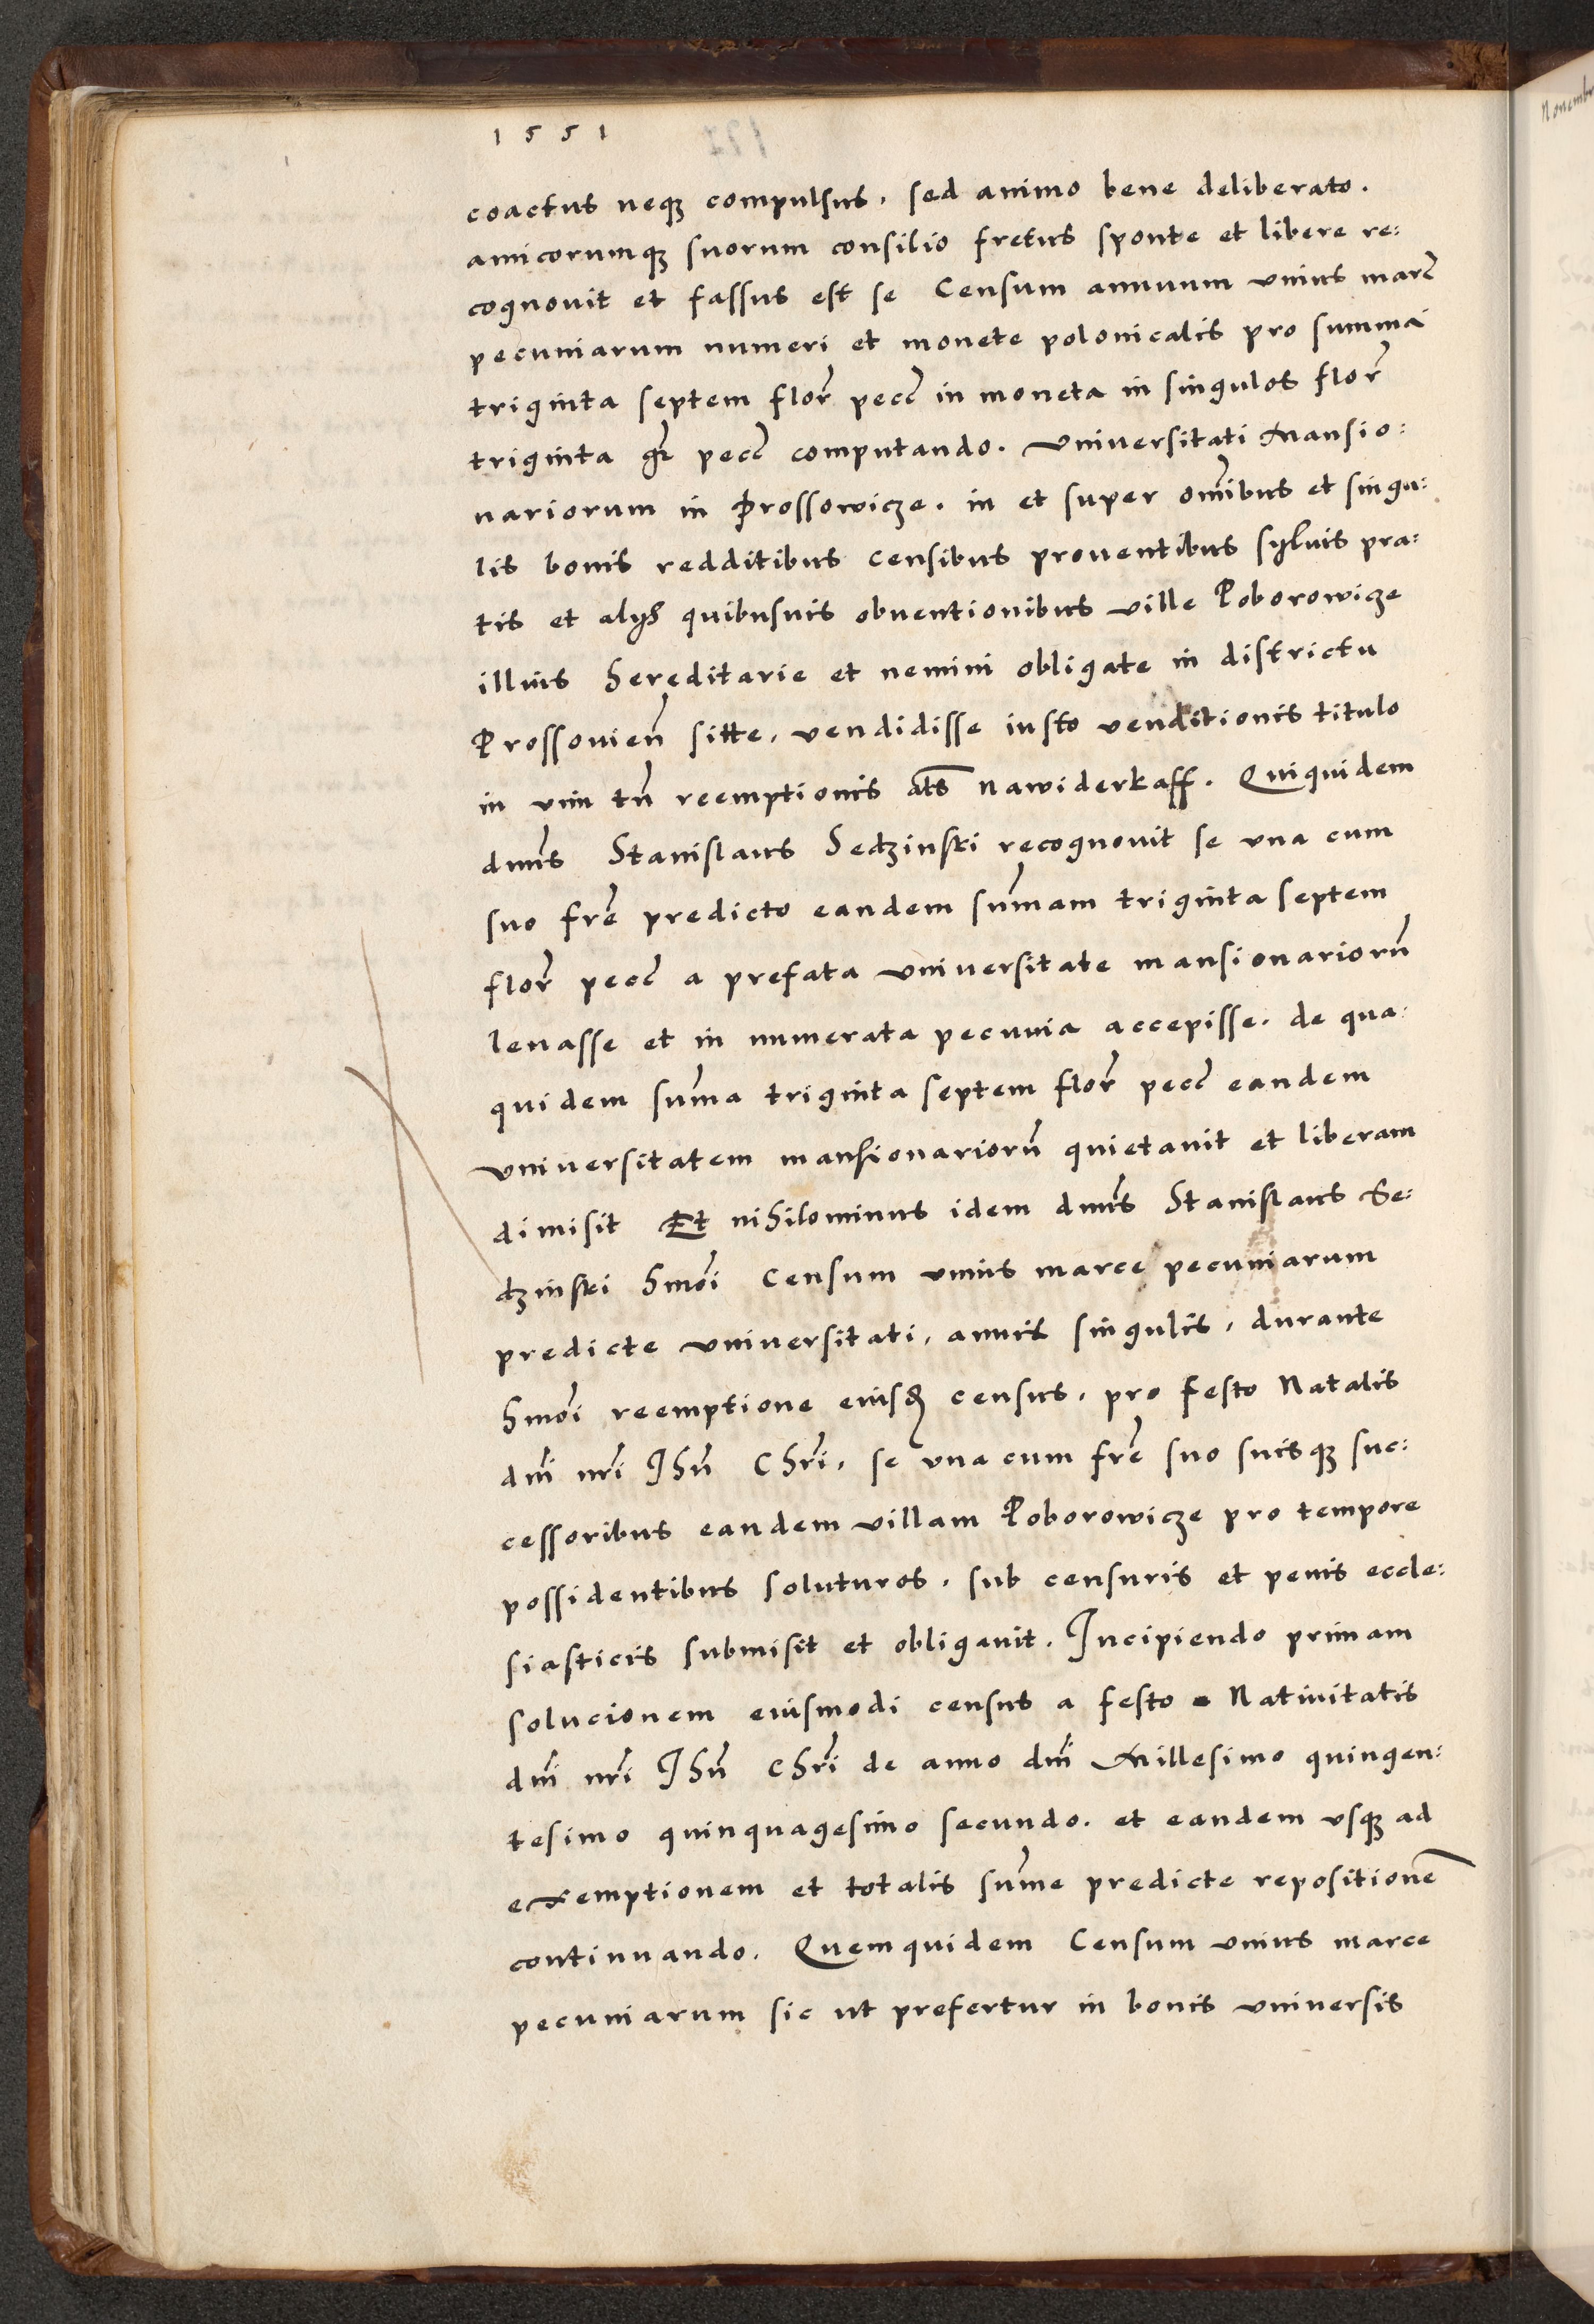 1551
coactus neqȝ compulsus, sed animo bene deliberato.
amicorumqȝ suorum consilio fretus sponte et libere re:
cognouit et fassus est se Censum annuum vnius marc̄
pecuniarum numeri et monete polonicalis pro summa
triginta septem flor̄ pecc̄ in moneta in singulos flor̄
triginta gr̄ pecc̄ computando. vniversitati Mansio:
nariorum in Prossowicze. in et super om̄ibus et singu:
lis bonis redditibus censibus prouentibus syluis pra:
tis et alys quibusuis obuentionibus ville Poborowicze
illius hereditarie et nemini obligate in districtu
Prossouien̄ sitte, vendidisse iusto venditionis titulo
in vim tn̄ reemptionis al̄s nawiderkaff. Quiquidem
dnūs Stanislaus Sedzinski recognouit se vna cum
suo fr̄e predicto eandem sum̄am triginta septem
flor̄ pecc̄ a prefata vniversitate mansionariorū
leuasse et in numerata pecunia accepisse. de qua:
quidem sum̄a triginta septem flor̄ pecc̄ eandem
vniversitatem mansionariorū quietauit et liberam
dimisit Et nihilominus idem dnūs Stanislaus Se:
dzinski hmōi Censum vnius marce pecuniarum
predicte vniversitati, annis singulis, durante
hmōi reemptione eiusd census, pro festo Natalis
dn̄i nr̄i Ihū Chr̄i, se vna cum fr̄e suo suisqȝ suc:
cessoribus eandem villam Poborowicze pro tempore
possidentibus soluturos, sub censuris et penis eccle:
siasticis submisit et obligauit. Incipiendo primam
solucionem eiusmodi census a festo Natiuitatis
dn̄i nr̄i Ihū Chr̄i de anno dn̄i Millesimo quingen:
tesimo quinquagesimo secundo. et eandem vsqȝ ad
exemptionem et totalis sum̄e predicte repositionē
continuando. Quemquidem Censum vnius marce
pecuniarum sic ut prefertur in bonis vniversis